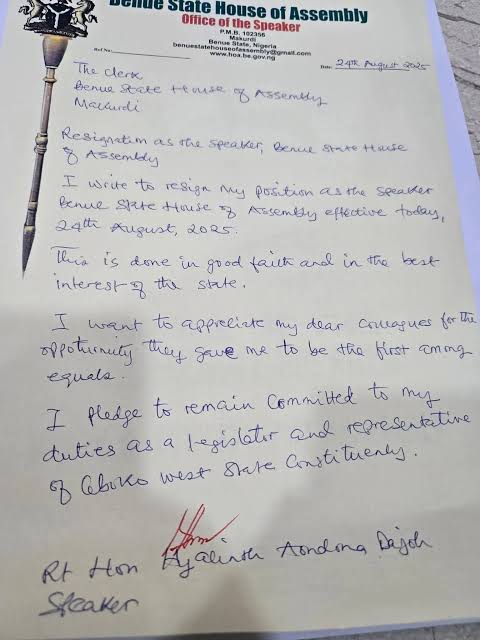 Benue State House of Assembly
Office of the Speaker
P.M.B. 102356
Makurdi
Benue State, Nigeria
benuestatehouseofassembly@gmail.com
www.hoa.be.gov.ng
Ref No:
Date: 24th August 2025
The Clerk
Benue State House of Assembly
Makurdi
Resignation as the Speaker, Benue State House
of Assembly
I write to resign my position as the Speaker
Benue State House of Assembly effective today,
24th August, 2025.
This is done in good faith and in the best
interest of the state.
I want to appreciate my dear colleagues for the
oppoturnity they gave me to be the first among
equals.
I pledge to remain committed to my
duties as a legislator and representative
of Gboko West State Constituency.
Rt Hon Hyacinth Aondona Dajoh
Speaker